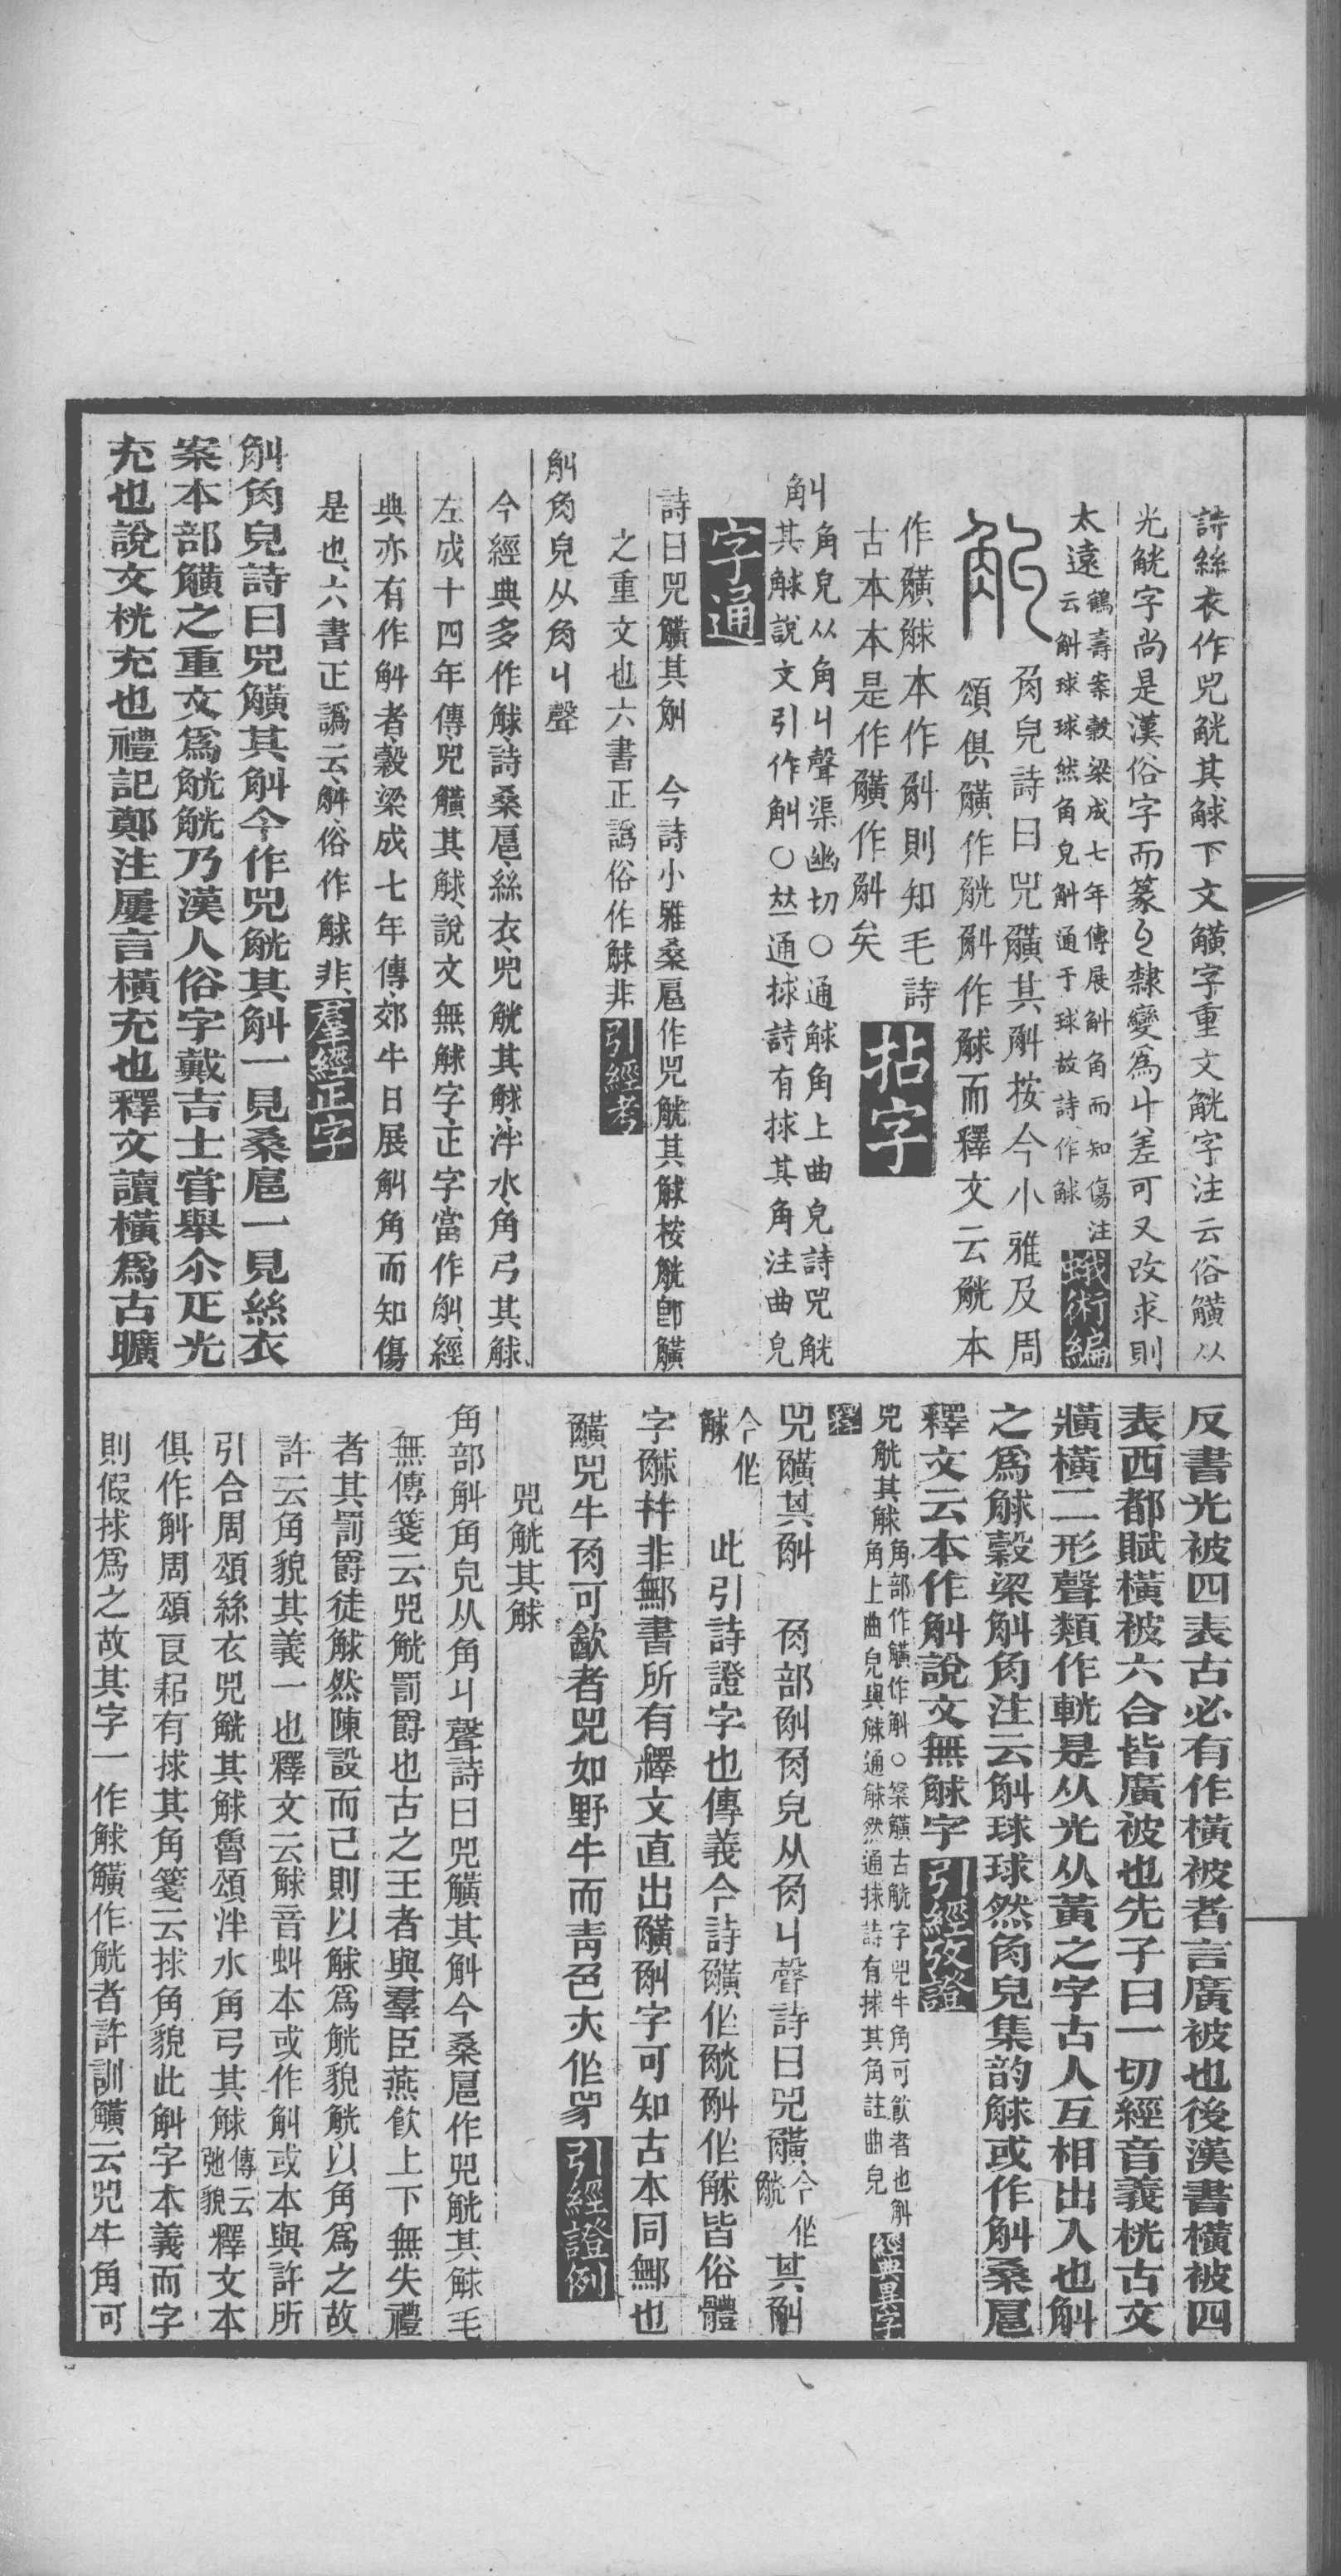 詩絲衣作兕觥其觩下文觵字重文觥字注云俗觵从
光觥字尚是漢俗字而篆隸變爲丩差可又改求則
太遠鶴壽案穀梁成七年傳展斛角而知傷注
云斛球球然角皃斛通于球故詩作觩
蛾術編
角皃詩曰兕觵其觓按今小雅及周
頌俱觵作觥觓作觩而釋文云觥本
作觵觩本作觓則知毛詩
古本本是作觵作觓矣
拈字
觓角皃从角丩聲渠幽切○通觩角上曲皃詩兕觥
其觩說文引作觓○𠀤通捄詩有捄其角注曲皃
字通
詩曰兕觵其觓　今詩小雅桑扈作兕觥其觩桉觥卽觵
之重文也六書正譌俗作觩非
引經考
觓角皃从角丩聲
今經典多作觩詩桑扈絲衣兕觥其觩泮水角弓其觩
左成十四年傳兕觵其觩說文無觩字正字當作觓經
典亦有作斛者穀梁成七年傳郊牛日展觓角而知傷
是也六書正譌云斛俗作觩非
羣經正字
觓角皃詩曰兕觵其觓今作兕觥其觓一見桑扈一見絲衣
案本部觵之重文爲觥觥乃漢人俗字戴吉士嘗舉尒疋光
充也說文桄充也禮記鄭注屢言橫充也釋文讀橫爲古曠
反書光被四表古必有作橫被者言廣被也後漢書橫被四
表西都賦橫被六合皆廣被也先子曰一切經音義桄古文
㯫橫二形聲類作軦是从光从黃之字古人互相出入也觓
之爲觩穀梁斛角注云斛球球然角皃集韵觩或作斛桑扈
釋文云本作斛說文無觩字
引經攷證
兕觥其觩角部作觵作斛○案觵古觥字兕牛角可飲者也斛
角上曲皃與觩通觩然通捄詩有捄其角註曲皃
經典異字釋
兕觵其觓　角部觓角皃从角丩聲詩曰兕觵今作觥其觓
今作觩　此引詩證字也傳義今詩觵作觥觓作觩皆俗體
字觩幷非鄦書所有釋文直出觵觓字可知古本同鄦也
觵兕牛角可歙者兕如野牛而靑色亣作𤉡
引經證例
兕觥其觩
角部斛角皃从角丩聲詩曰兕觵其斛今桑扈作兕觥其觩毛
無傳箋云兕觥罰爵也古之王者與羣臣燕飮上下無失禮
者其罰爵徒觩然陳設而己則以觩爲觥貌觥以角爲之故
許云角貌其義一也釋文云觩音虯本或作斛或本與許所
引合周頌絲衣兕觥其觩魯頌泮水角弓其觩傳云弛貌釋文本
俱作斛周頌良耜有捄其角箋云捄角貌此斛字本義而字
則假捄爲之故其字一作觩觵作觥者許訓觵云兕牛角可